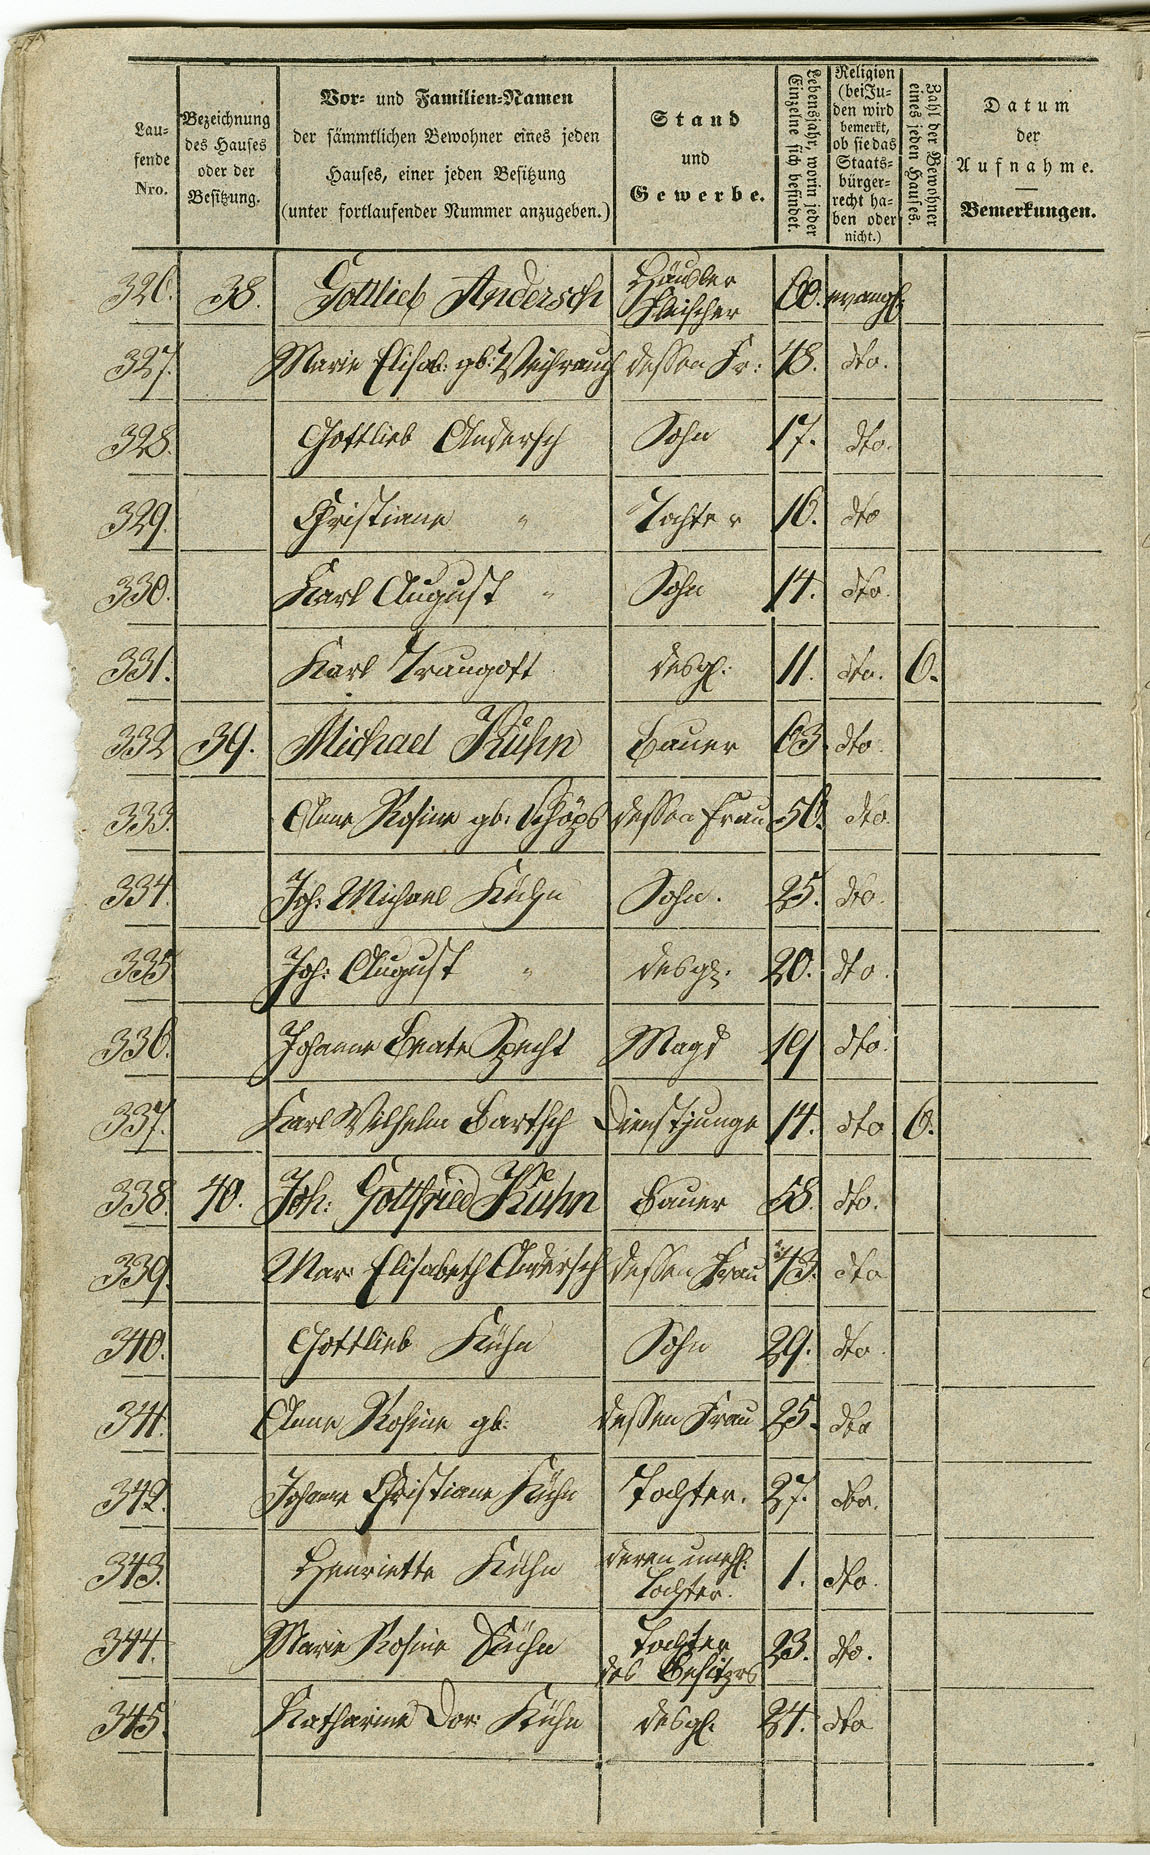 Lau-
fende
Nro.
Bezeichnung
des Hauses
oder der
Besitzung.
Vor- und Familien-Namen
der sämmtlichen Bewohner eines jeden
Hauses, einer jeden Besitzung
(unter fortlaufender Nummer anzugeben.)
Stand
und
Gewerbe.
Lebensjahr, worin jeder
Einzelne sich befindet.
Religion
(bei Ju-
den wird
bemerkt,
ob sie das
Staats-
bürger-
recht ha-
ben oder
nicht.)
Zahl der Bewohner
eines jeden Hauses.
Datum
der
Aufnahme.
Bemerkungen.
326. 38. Gottlieb Andersch Häusler Fleischer 60. evangl:
327. Marie Elisab: gb: Weihrauch dessen Fr: 48. dto.
328. Gottlieb Andersch Sohn 17. dto.
329. Christiane " Tochter 16. dto
330. Karl August " Sohn 14. dto.
331. Karl Traugott desgl: 11. dto. 6.
332 39. Michael Kühn Bauer 63. dto.
333. Anne Rosine gb: Schöps dessen Frau 56. dto.
334. Joh: Michael Kühn Sohn. 25. dto.
335 Joh: August " desgl. 20. dto.
336. Johanne Beate Specht Magd 19 dto.
337. Karl Wilhelm Bartsch Dienstjunge 14. dto 6.
338. 40. Joh: Gottfried Kühn Bauer 58. dto.
339. Mar: Elisabeth Andersch dessen Frau 43. dto
340. Gottlieb Kühn Sohn 29. dto.
341. Anne Rosine gb: dessen Frau 25. dto
342. Johanne Christiane Kühn Tochter. 27. dto.
343. Henriette Kühn deren unehl: Tochter. 1. dto.
344. Marie Rosine Kühn Tochter des Besitzers 23. dto.
345. Katharine Dor: Kühn desgl. 24. dto